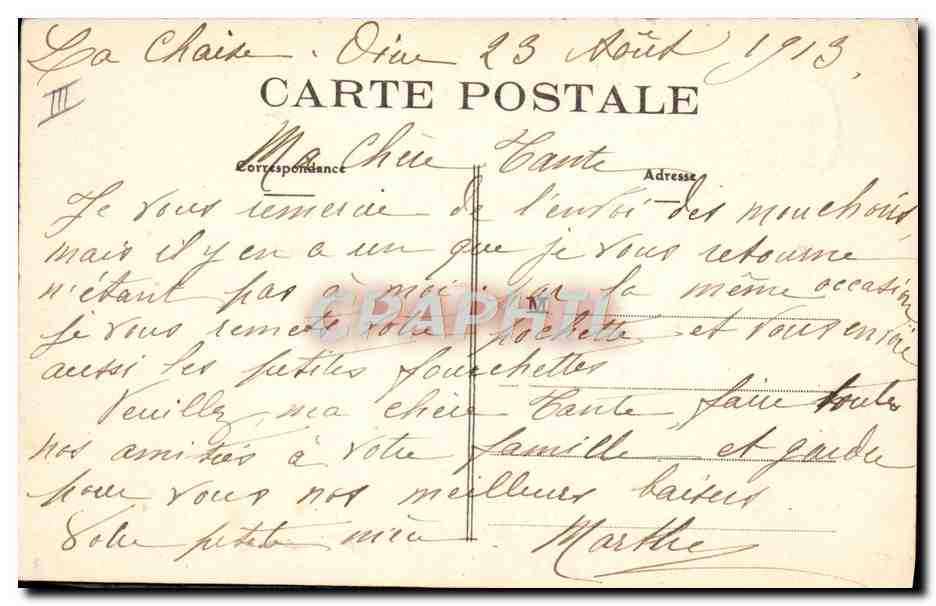 La Chaise. Oise 23 Août 1913.
III
CARTE POSTALE
Ma Chère Tante
Correspondance
Adresse
Je vous remercie de l'envoi des mouchoirs,
mais il y en a un que je vous retourne
n'étant pas à moi. par la même occasion
M
CPAPHIL
je vous remets votre pochette et vous envoie
aussi les petites fourchettes
Veuillez, ma chère Tante faire toutes
nos amitiés à votre famille et garder
pour vous nos meilleurs baisers
Votre petite nièce Marthe